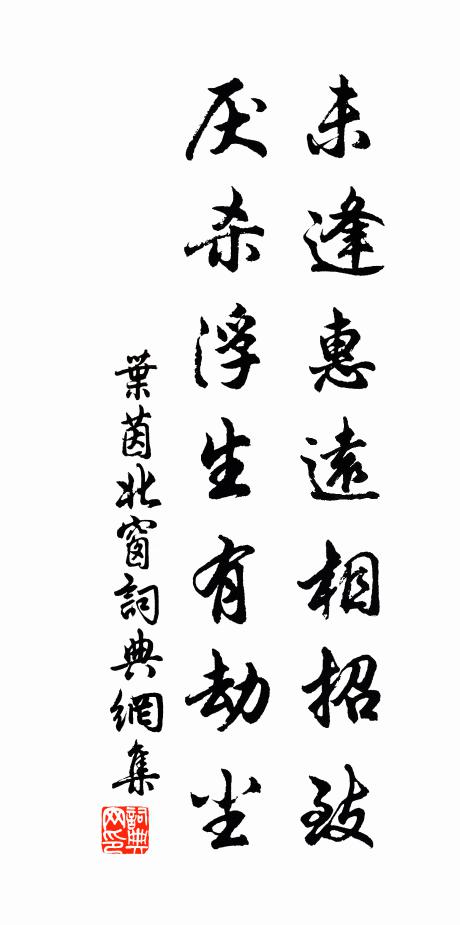 未逢惠遠相招致
厌杀浮生有劫尘
葉茵北窗詞典網集
詞典网印